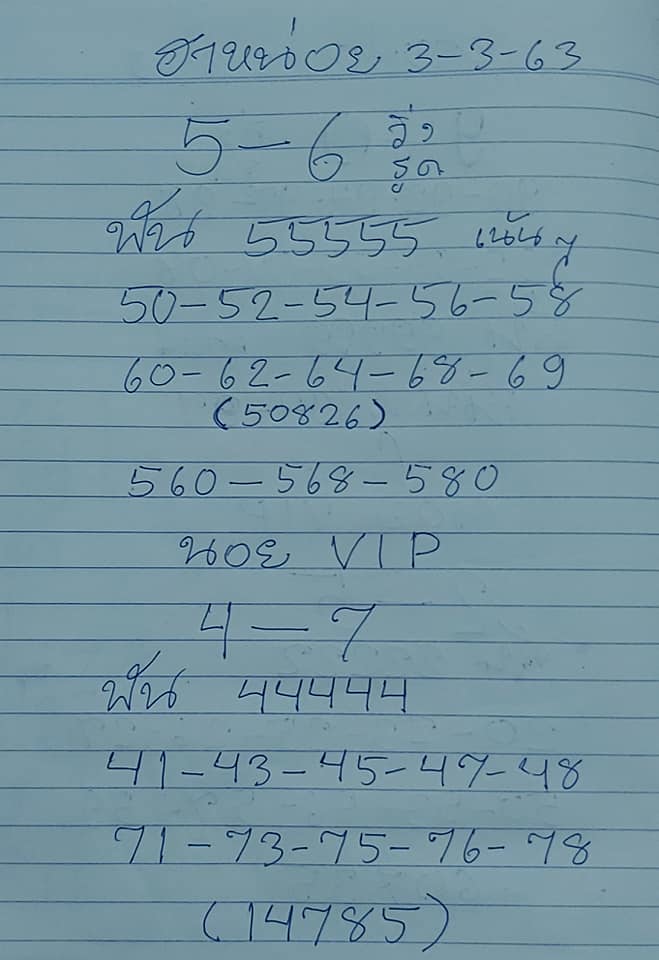 ฮานอย 3-3-63
5-6 วิ่ง
รูด
ฟัน 55555 เน้นๆ
50-52-54-56-58
60-62-64-68-69
(50826)
560-568-580
นอย VIP
4-7
ฟัน 44444
41-43-45-47-48
71-73-75-76-78
(14785)